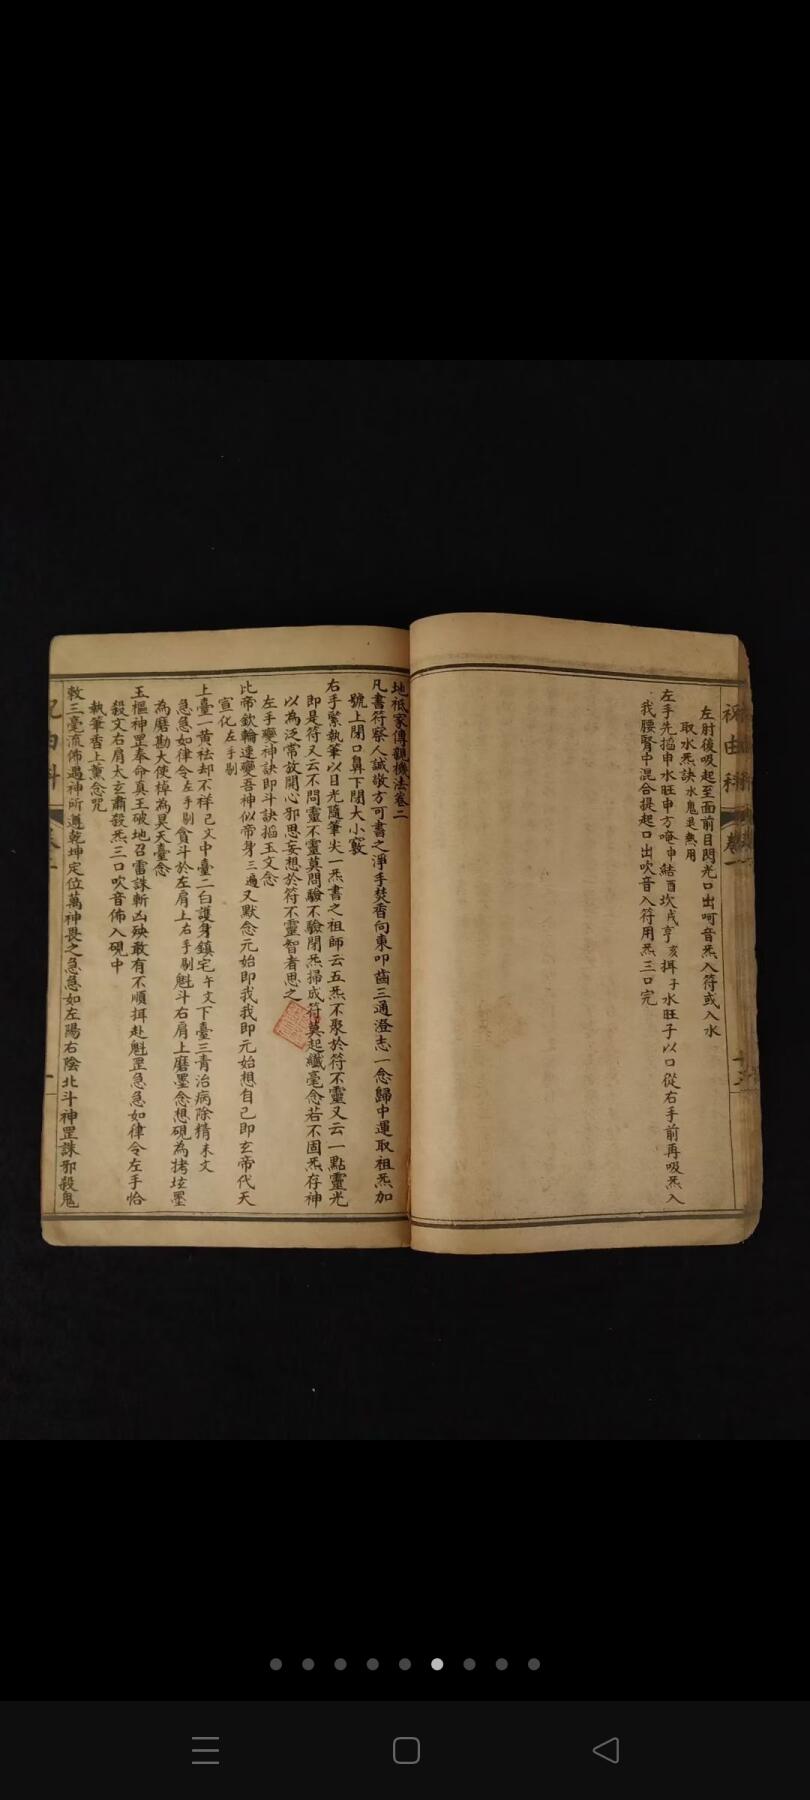 祝由科
卷一
十三
左肘後吸起至面前目閃光口出呵音炁入符或入水
取水炁訣水鬼退熱用
左手先搯申水旺申方唵申結酉坎戌亨亥揖子水旺子以口從右手前再吸炁入
我腰腎中混合提起口出吹音入符用炁三口完
地祇家傳親機法卷二
凡書符察人誠敬方可書之淨手焚香向東叩齒三通澄志一念歸中運取祖炁加
號上閉口鼻下閉大小竅
右手緊執筆以目光隨筆尖一炁書之祖師云五炁不聚於符不靈又云一點靈光
即是符又云不問靈不靈莫問驗不驗閉炁掃成符莫起纖毫念若不固炁存神
以為泛常放開心邪思妄想於符不靈智者思之
左手變神訣即斗訣搯玉文念
比帝欽輪速變吾神似帝身三遍又默念元始即我我即元始想自己即玄帝代天
宣化左手剔
上臺一黃祛却不祥己文中臺二白護身鎮宅午文下臺三青治病除精未文
急急如律令左手剔貪斗於左肩上右手剔魁斗右肩上磨墨念想硯為拷垃墨
為磨勘大使棹為昊天臺念
玉樞神罡奉命真王破地召雷誅斬凶殃敢有不順揖赴魁罡急急如律令左手恰
殺文右肩太玄肅殺炁三口吹音佈入硯中
執筆香上薰念咒
敕三毫流佈遇神所遵乾坤定位萬神畏之急急如左陽右陰北斗神罡誅邪殺鬼